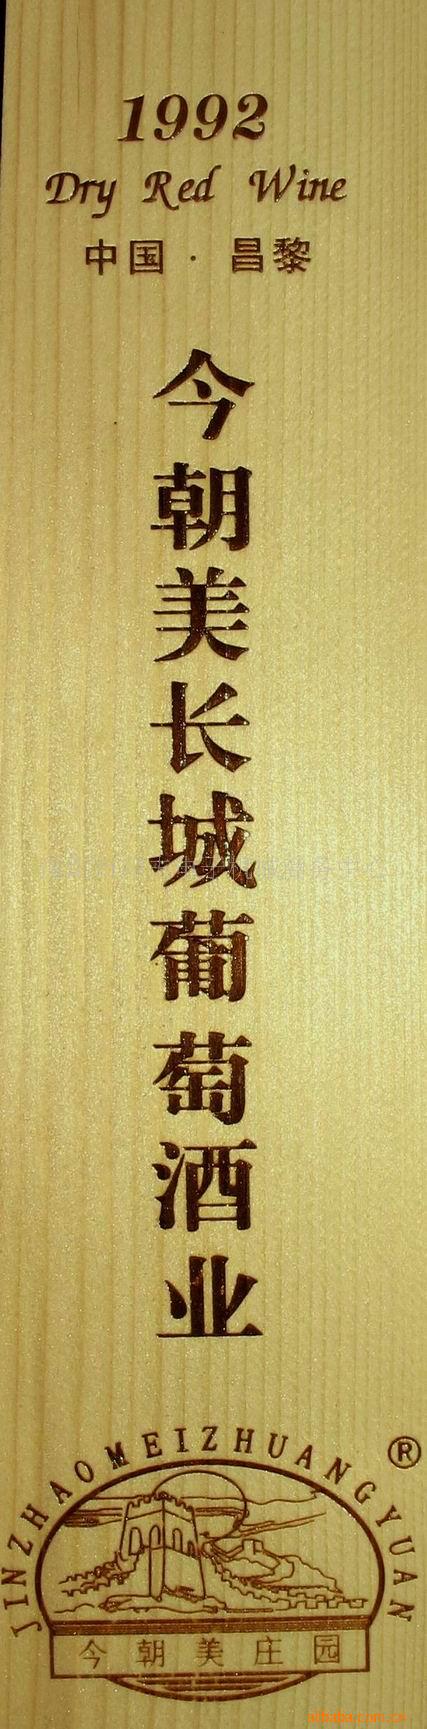 1992
Dry Red Wine
中国·昌黎
今朝美长城葡萄酒业
JINZHAOMEIZHUANGYUAN
®
今朝美庄园